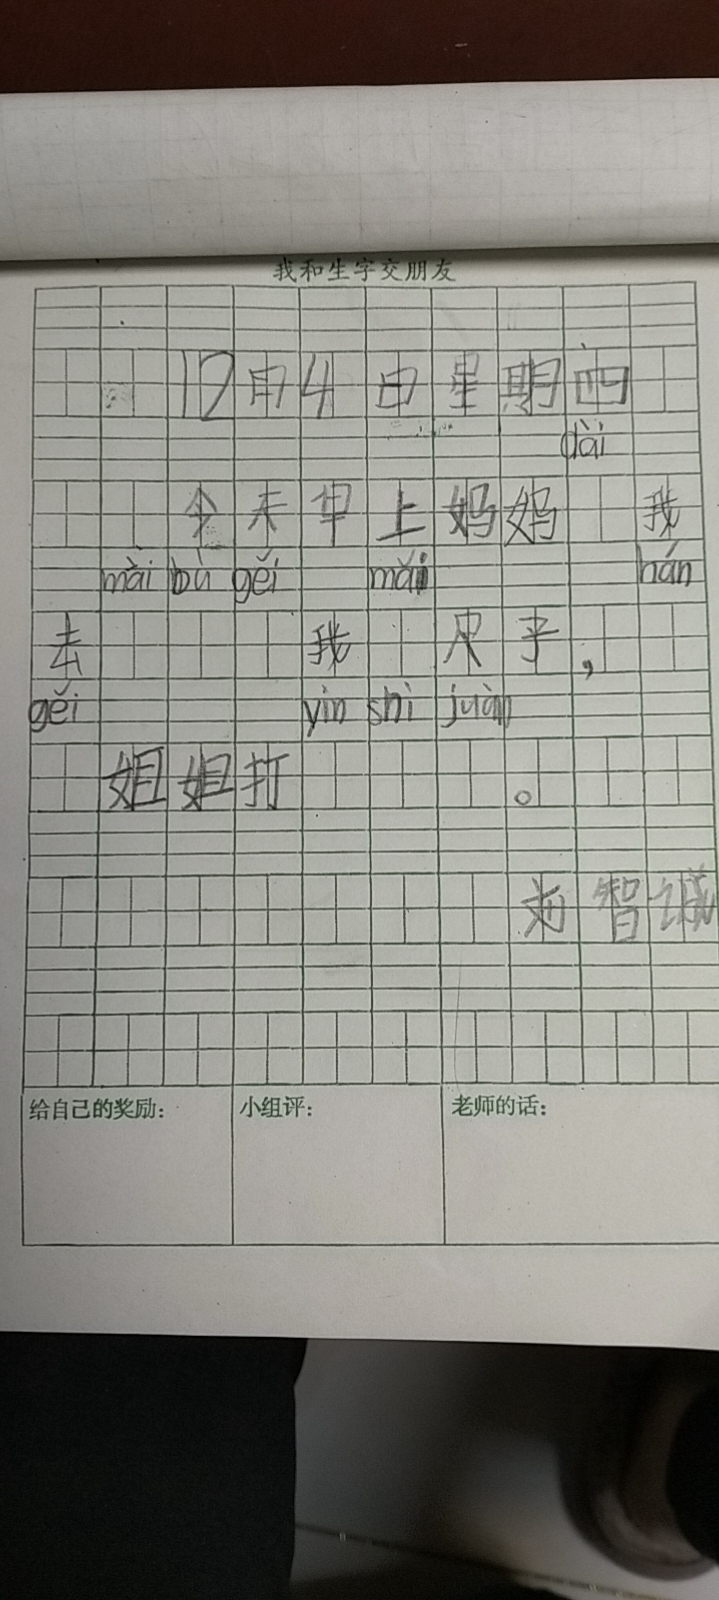 我和生字交朋友
12月4日星期四
dài
今天早上妈妈 我
mài bù gěi mǎi hán
去 我 尺子,
gěi yìn shì juàn
姐姐打 。
智诚
给自己的奖励: 小组评: 老师的话: